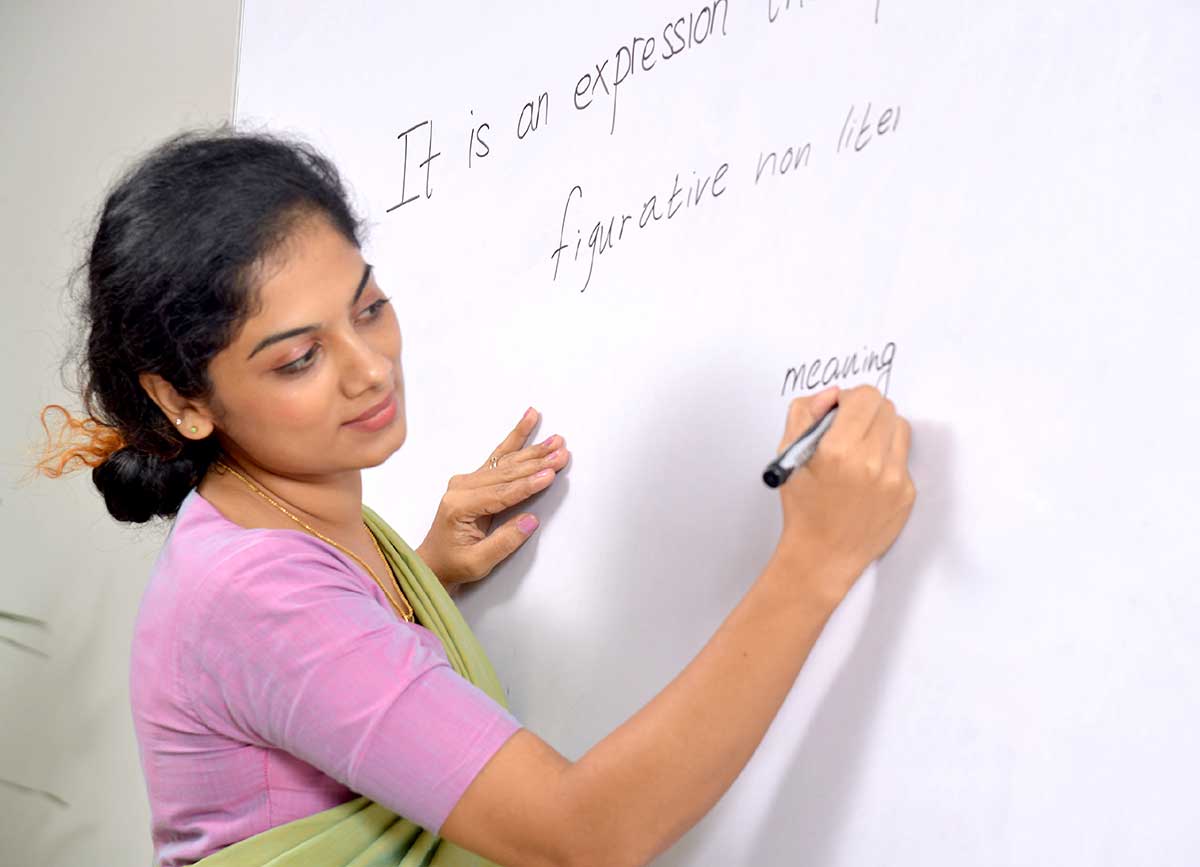 It is an expression
figurative non liter
meaning